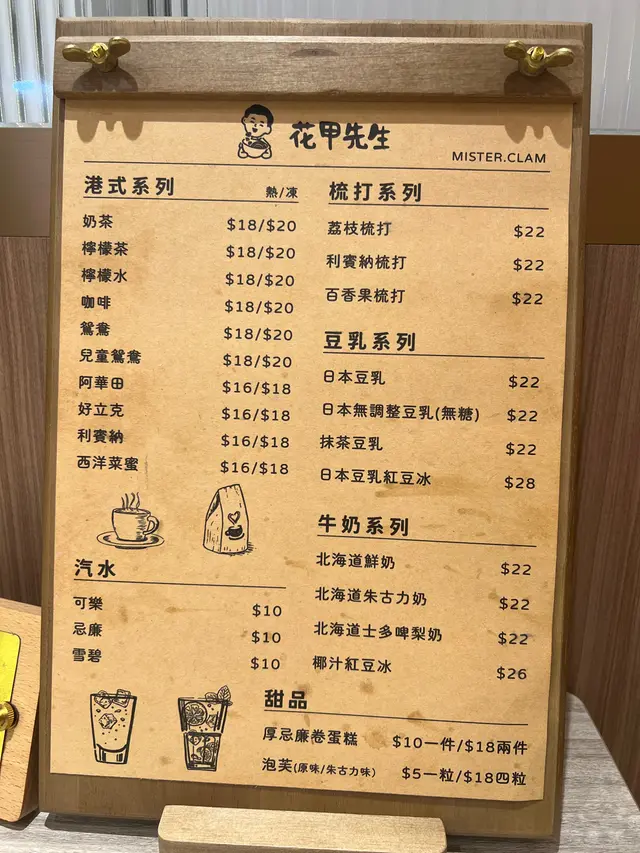 花甲先生
MISTER.CLAM
港式系列 熱/凍
奶茶 $18/$20
檸檬茶 $18/$20
檸檬水 $18/$20
咖啡 $18/$20
鴛鴦 $18/$20
兒童鴛鴦 $18/$20
阿華田 $16/$18
好立克 $16/$18
利賓納 $16/$18
西洋菜蜜 $16/$18
汽水
可樂 $10
忌廉 $10
雪碧 $10
梳打系列
荔枝梳打 $22
利賓納梳打 $22
百香果梳打 $22
豆乳系列
日本豆乳 $22
日本無調整豆乳(無糖) $22
抹茶豆乳 $22
日本豆乳紅豆冰 $28
牛奶系列
北海道鮮奶 $22
北海道朱古力奶 $22
北海道士多啤梨奶 $22
椰汁紅豆冰 $26
甜品
厚忌廉卷蛋糕 $10一件/$18兩件
泡芙(原味/朱古力味) $5一粒/$18四粒